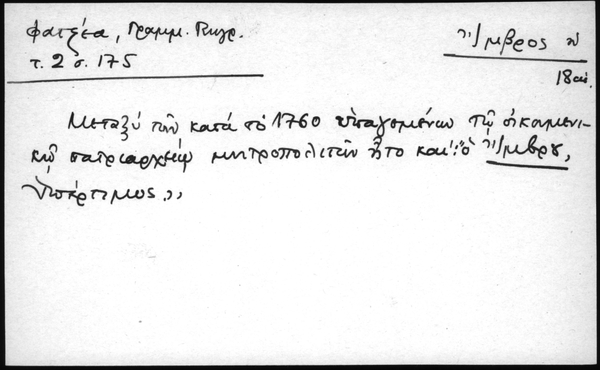 Φατζέα, Γραμμ. Κυρ.
τ. 2 σ. 175
Ἴμβρος
18 αἰ.
Μεταξύ τῶν κατά τό 1760 ὑπαγομένων τῷ οἰκουμενι-
κῷ πατριαρχείῳ μητροπολιτῶν ἦτο καί: "ὁ Ἴμβρου,
ὑπέρτιμος,,